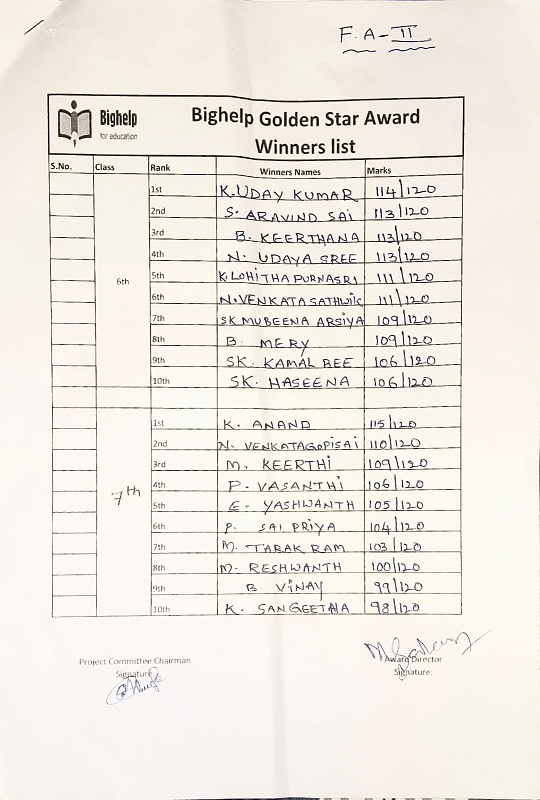 F.A-II
Bighelp
for education
Bighelp Golden Star Award
Winners list
S.No. Class Rank Winners Names Marks
1st K.UDAY KUMAR 114/120
2nd S. ARAVIND SAi 113/120
3rd B. KEERTHANA 113/120
4th N. UDAYA SREE 113/120
5th K.LOHITHAPURNASRI 111/120
6th
6th N.VENKATA SATHWIK 111/120
7th SK MUBEENA ARSIYA 109/120
8th B. MERY 109/120
9th SK. KAMAL BEE 106/120
10th SK. HASEENA 106/120
1st K. ANAND 115/120
2nd N. VENKATAGOPISAI 110/120
3rd M. KEERTHi 109/120
4th P. VASANTHi 106/120
7th
5th E. YASHWANTH 105/120
6th P. SAI PRIYA 104/120
7th M. TARAK RAM 103/120
8th M. RESHWANTH 100/120
9th B. ViNAY 99/120
10th K. SANGEETHA 98/120
Project Committee Chairman
Signature:
Award Director
Signature: